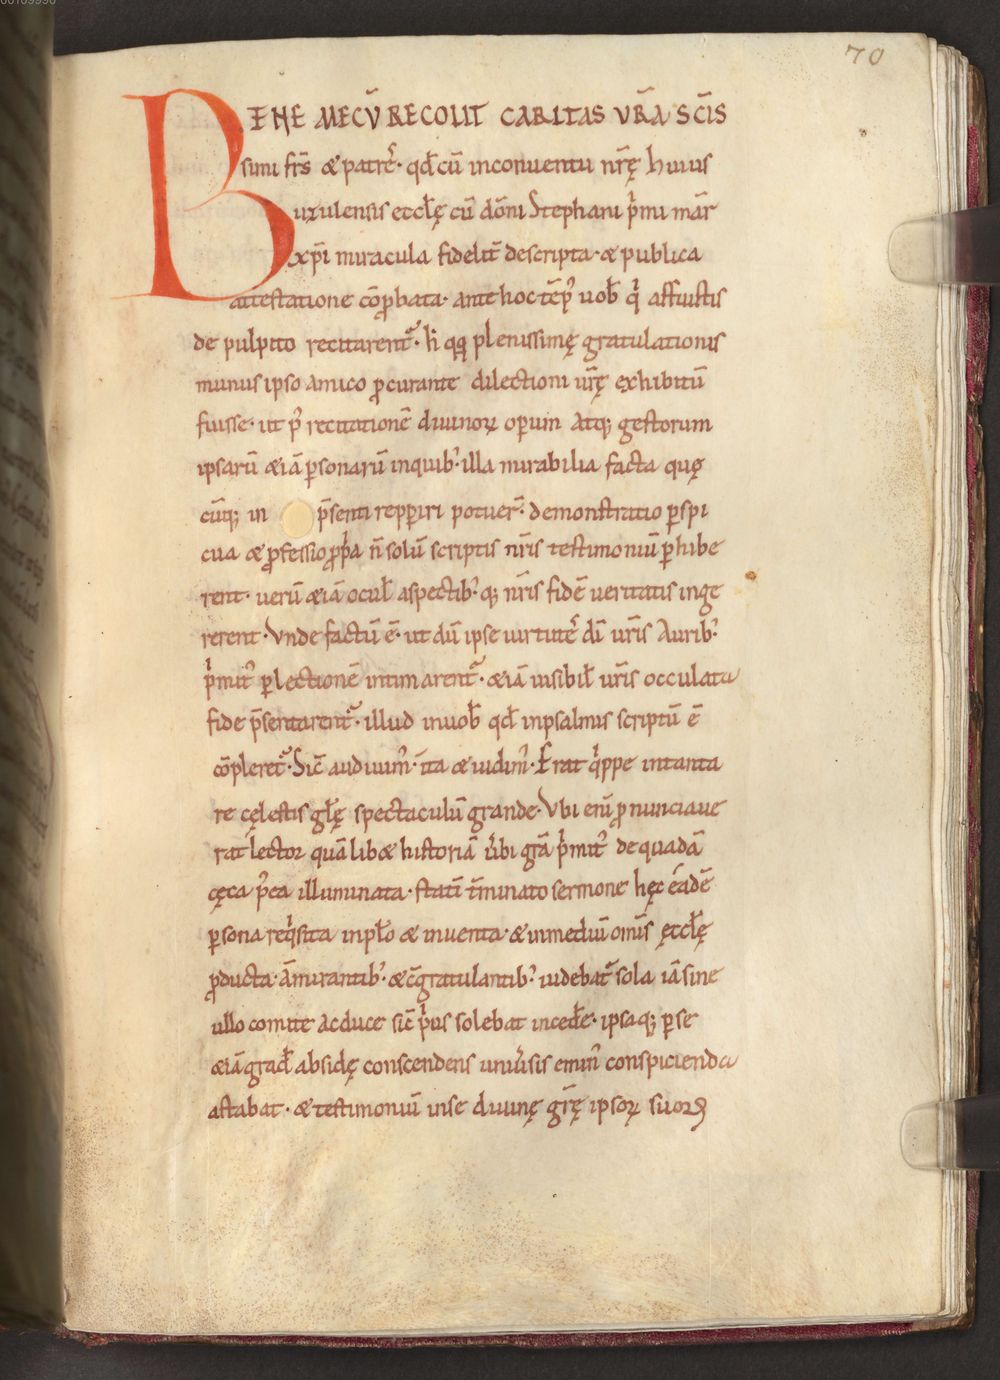 00109990
70
BENE MECŪ RECOLIT CARITAS VR̄A SCĪS
simi frs̄ & patrē· qd̄ cū in conuentu nrę̄ huius
uzulensis ęccłę cū dōni Stephani p̄mi mar̄
xp̄i miracula fidelit̄ descripta· & publica
attestatione cōprobata· ante hoc tēp᷒ uob̄ q̄ affuistis
de pulpito recitarent᷑· h̄ qq; plenissimę gratulationis
munus ipso amico procurante dilectioni ur̄ę exhibitū
fuisse· ut p᷒ recitationē diuinoꝝ operum atq; gestorum
ipsarū &iā ꝑsonarū in quib᷒ illa mirabilia facta quę
cūq; in p̄senti repperiri potuer̄· demonstratio ꝑspi
cua & ꝓfessio ꝓp̄a n̄ solū scriptis nr̄is testimoniū ꝑhibe
rent· uerū &iā ocul̄ aspectib᷒ q; nr̄is fidē ueritatis inge
rerent· Vnde factū ē· ut dū ipse uirtutē dī ur̄is aurib᷒
p̄mit᷒ ꝑ lectionē intimarent᷑· &iā uisibil̄ ur̄is occulata
fide p̄sentarent᷑· illud in uob̄ qd̄ in psalmis scriptū ē
cōpleret᷑· Sic̄ audiuim᷒· ita & uidim᷒· Erat q̄ppe in tanta
re cęlestis gl̄ę spectaculū grande· Vbi enī pronunciaue
rat lector quālib& historiā u̅bi grā p̄mit᷒ de quadā
cęca p᷒ca illuminata· statī t̄minato sermone hęc eadē
ꝑsona req̄sita in pl̄o & inuenta· & in mediū omīs ęccłę
ꝓducta· āmirantib᷒· & cḡratulantib᷒· uidebat᷑ sola iā sine
ullo comite ac duce sic̄ p̄us solebat inced̄e· ipsaq; ꝑ se
&iā grad̄ absidę conscendens uniūsis emin᷒ conspicienda
astabat· & testimoniū in se diuinę gr̄ę ipsoꝝ suoꝝ